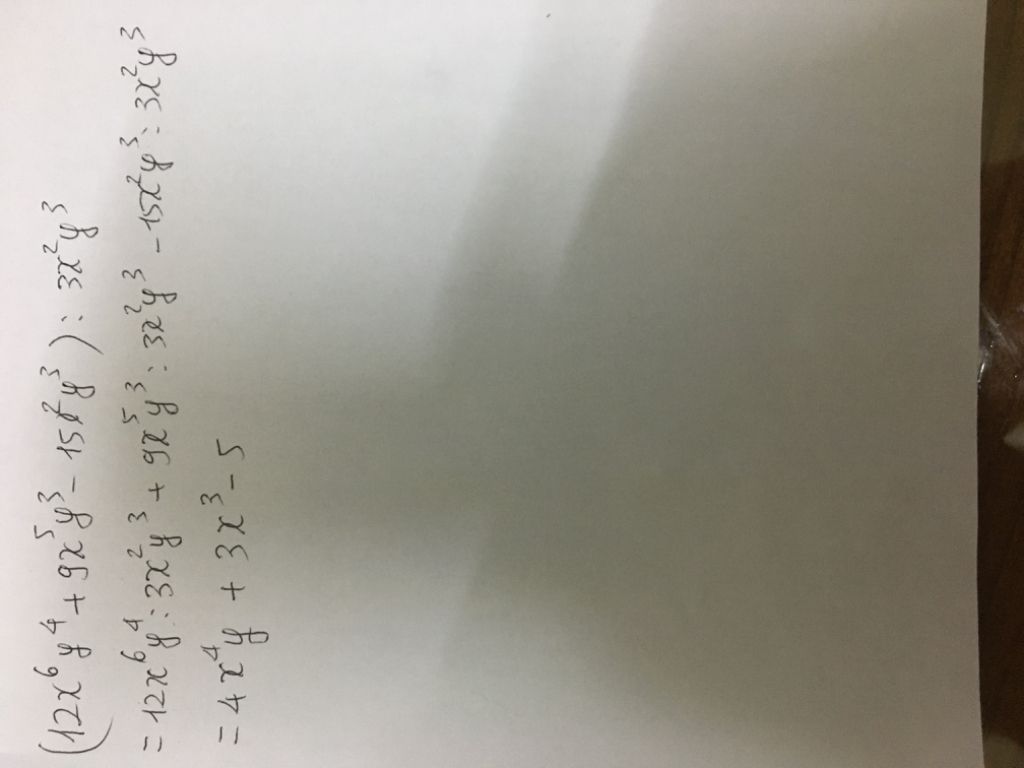 (12x⁶y⁴ + 9x⁵y³ - 15x²y³) : 3x²y³
= 12x⁶y⁴ : 3x²y³ + 9x⁵y³ : 3x²y³ - 15x²y³ : 3x²y³
= 4x⁴y + 3x³ - 5